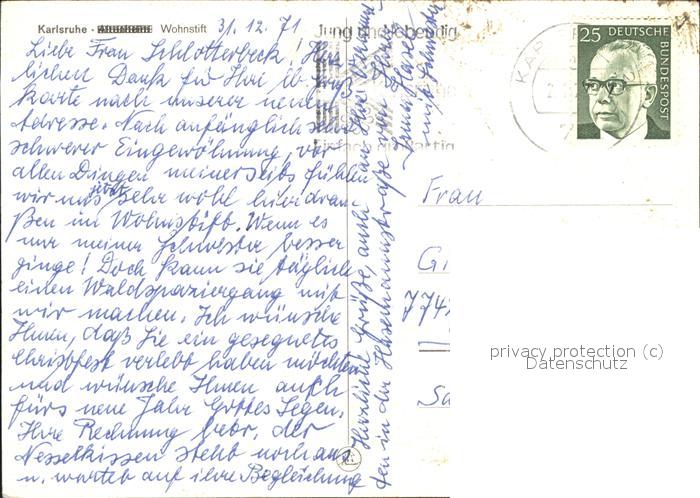 Karlsruhe - Wohnstift 31.12.71
Liebe Frau Schlotterbeck! Herz
lichen Dank für Ihre lb. Gruß
karte nach unserer neuen
Adresse. Nach anfänglich sehr
schwerer Eingewöhnung, vor
allen Dingen meinerseits fühlen
wir uns jetzt sehr wohl hier drau
ßen im Wohnstift. Wenn es
nur meiner Schwester besser
ginge! Doch kann sie täglich
einen Waldspaziergang mit
mir machen. Ich wünsche
Ihnen, daß Sie ein gesegnetes
Christfest verlebt haben möchten
und wünsche Ihnen auch
fürs neue Jahr Gottes Segen.
Ihre Rechnung betr. der
Nesselkissen steht noch aus
u. wartet auf ihre Begleichung
Herzliche Grüße, auch an Ihre
den in der von Ihrer
Jung und lebendig
25 DEUTSCHE
BUNDESPOST
Frau
G
774
Sa
privacy protection (c)
Datenschutz